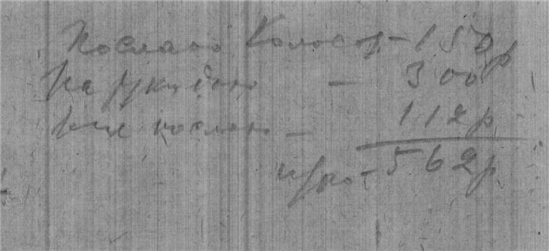 Послано Колосов - 150р
На руки дано - 300р
еще послано - 112р
итого - 562р